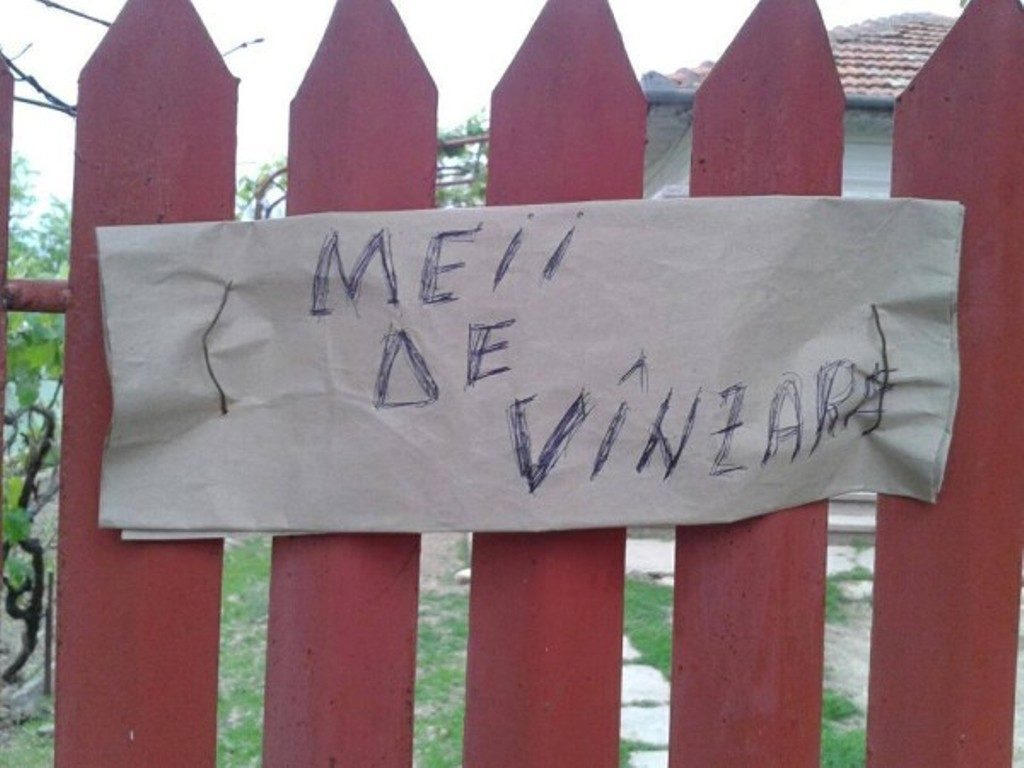 MEii
DE
VÎNZARE